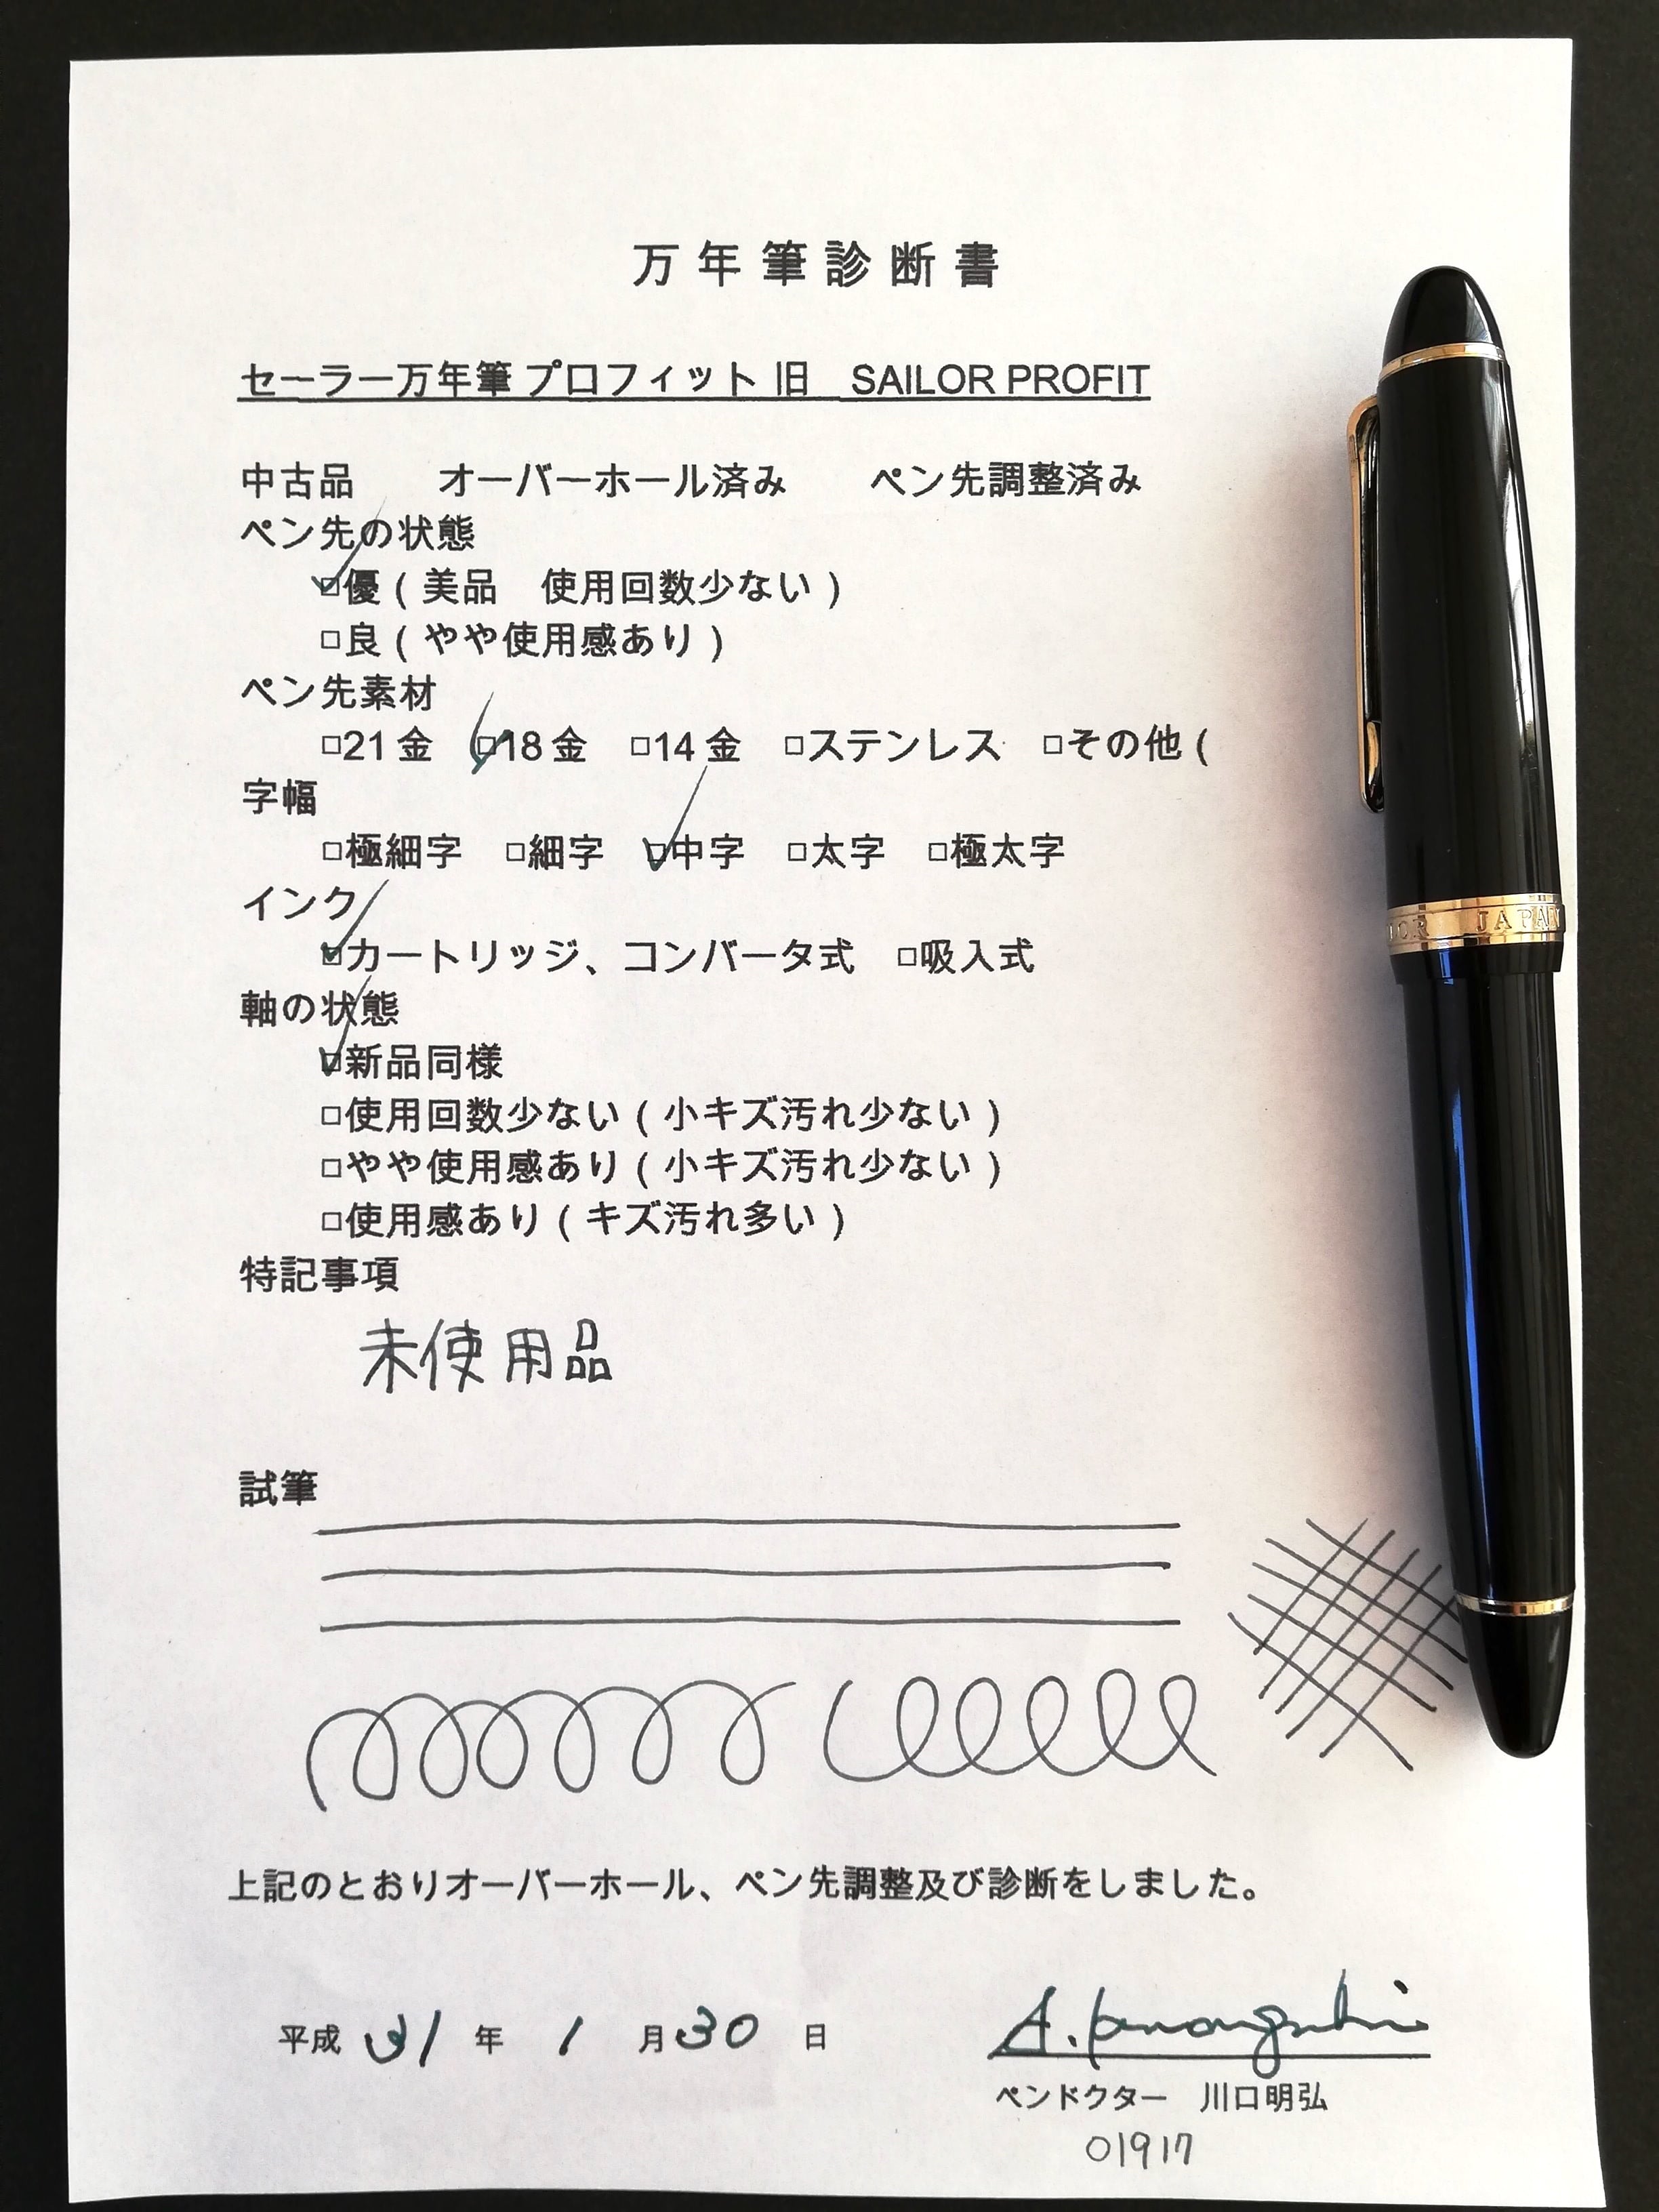 万年筆診断書
セーラー万年筆 プロフィット 旧　SAILOR PROFIT
中古品　　オーバーホール済み　　ペン先調整済み
ペン先の状態
☑優（美品　使用回数少ない）
□良（やや使用感あり）
ペン先素材
□21金　☑18金　□14金　□ステンレス　□その他（
字幅
□極細字　□細字　☑中字　□太字　□極太字
インク
☑カートリッジ、コンバータ式　□吸入式
軸の状態
☑新品同様
□使用回数少ない（小キズ汚れ少ない）
□やや使用感あり（小キズ汚れ少ない）
□使用感あり（キズ汚れ多い）
特記事項
未使用品
試筆
上記のとおりオーバーホール、ペン先調整及び診断をしました。
平成 31 年 1 月 30 日
A. Kawaguchi
ペンドクター　川口明弘
01917
JAPAN